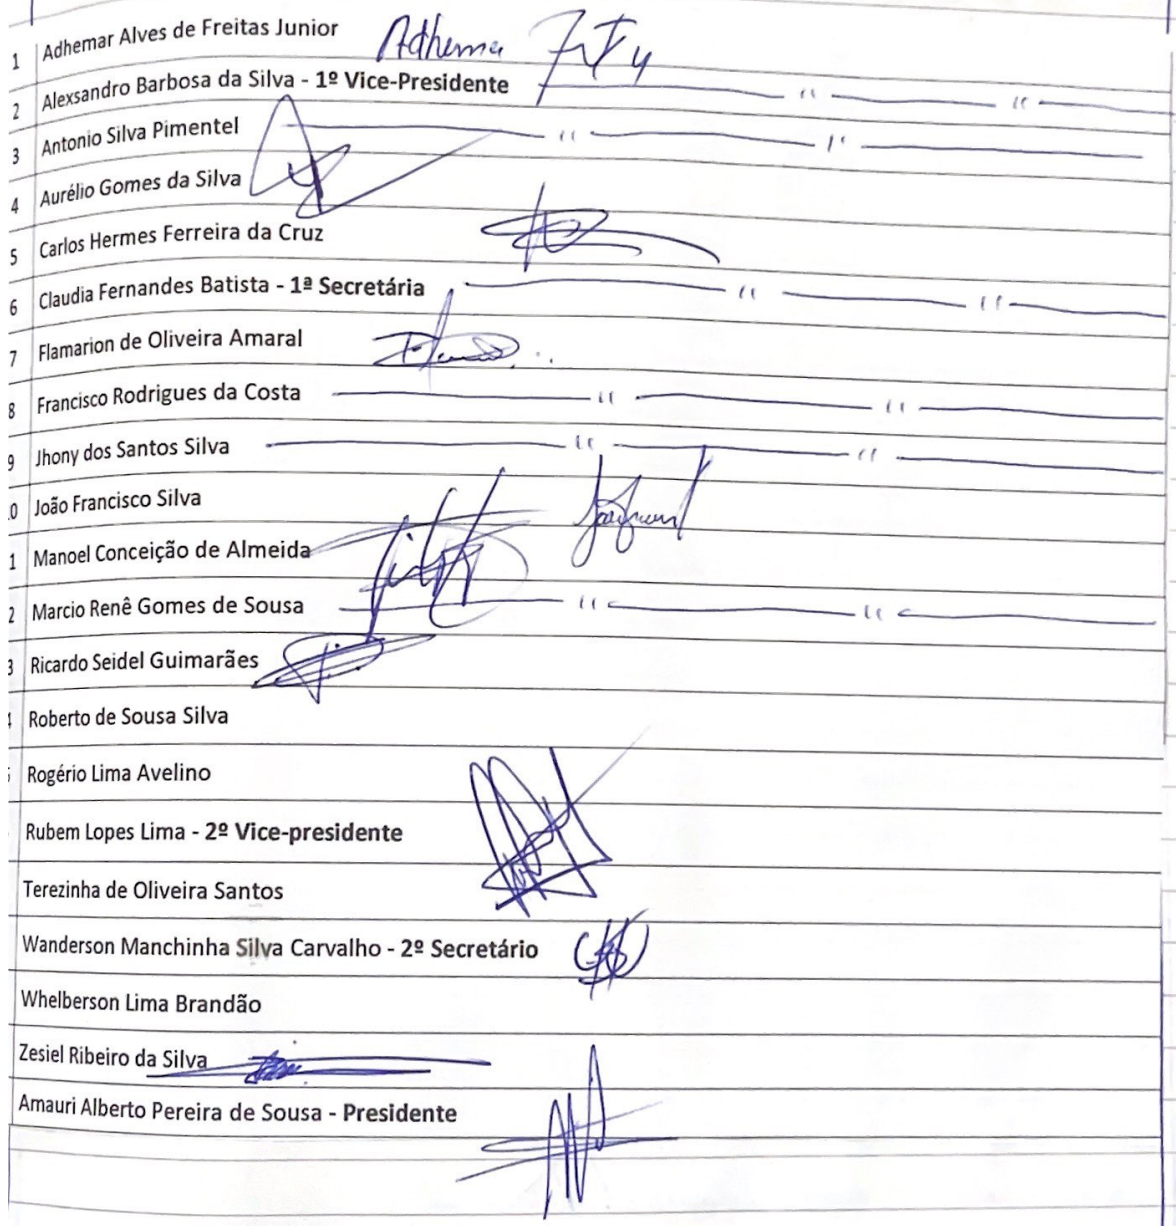 1 Adhemar Alves de Freitas Junior Adhemar
2 Alexsandro Barbosa da Silva - 1º Vice-Presidente
3 Antonio Silva Pimentel
4 Aurélio Gomes da Silva
5 Carlos Hermes Ferreira da Cruz
6 Claudia Fernandes Batista - 1ª Secretária
7 Flamarion de Oliveira Amaral
8 Francisco Rodrigues da Costa
9 Jhony dos Santos Silva
0 João Francisco Silva
1 Manoel Conceição de Almeida
2 Marcio Renê Gomes de Sousa
3 Ricardo Seidel Guimarães
Roberto de Sousa Silva
Rogério Lima Avelino
Rubem Lopes Lima - 2º Vice-presidente
Terezinha de Oliveira Santos
Wanderson Manchinha Silva Carvalho - 2º Secretário
Whelberson Lima Brandão
Zesiel Ribeiro da Silva
Amauri Alberto Pereira de Sousa - Presidente